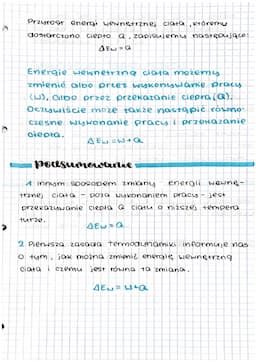 Przyrost energi wewnętrznej ciała, któremu
dostarczono ciepło Q, zapisujemy następująco:
ΔEw = Q
Energię wewnętrzną ciała możemy
zmienić albo przez wykonywanie pracy
(W), albo przez przekazanie ciepła (Q).
Oczywiście może także nastąpić równo-
czesne wykonanie pracy i przekazanie
ciepła.
ΔEw = W+Q
Podsumowanie
1 Innym sposobem zmiany energii wewnę-
trznej ciała - poza wykonaniem pracy - jest
przekazywanie ciepła Q ciału o niższej tempera
turze.
ΔEw = Q
2 Pierwsza zasada termodynamiki informuje nas
o tym, jak można zmienić energię wewnętrzną
ciała i czemu jest równa ta zmiana.
ΔEw = W+Q